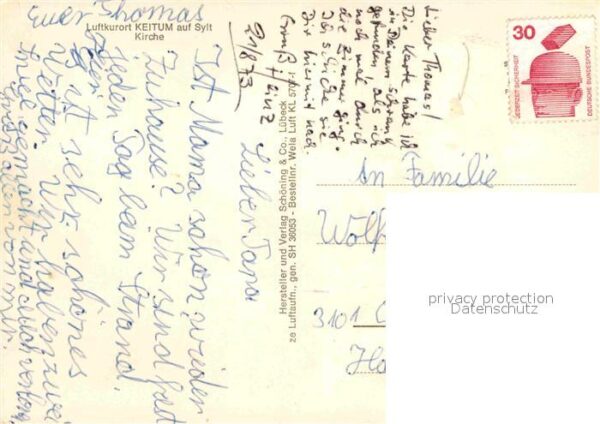 Luftkurort KEITUM auf Sylt
Kirche
21/8/73
Lieber Papa
Ist Mama schon wieder
Zuhause? Wir sind fast
jeden Tag beim Strand.
ist sehr schönes
Wetter. Wir haben zwei
und
von mir.
Euer Thomas
Lieber Thomas!
Die Karte habe ich
in Deinem Schrank
gefunden als ich
noch mal durch
die Zimmer ging.
Ich schicke sie
Dir hiermit nach.
Gruß Heinz
Hersteller und Verlag Schöning & Co., Lübeck
ze Luftaufn., gen. SH 36053 - Bestellnr. Wela Luft KL
30
JEDERZEIT SICHERHEIT
DEUTSCHE BUNDESPOST
An Familie
3101
privacy protection
Datenschutz